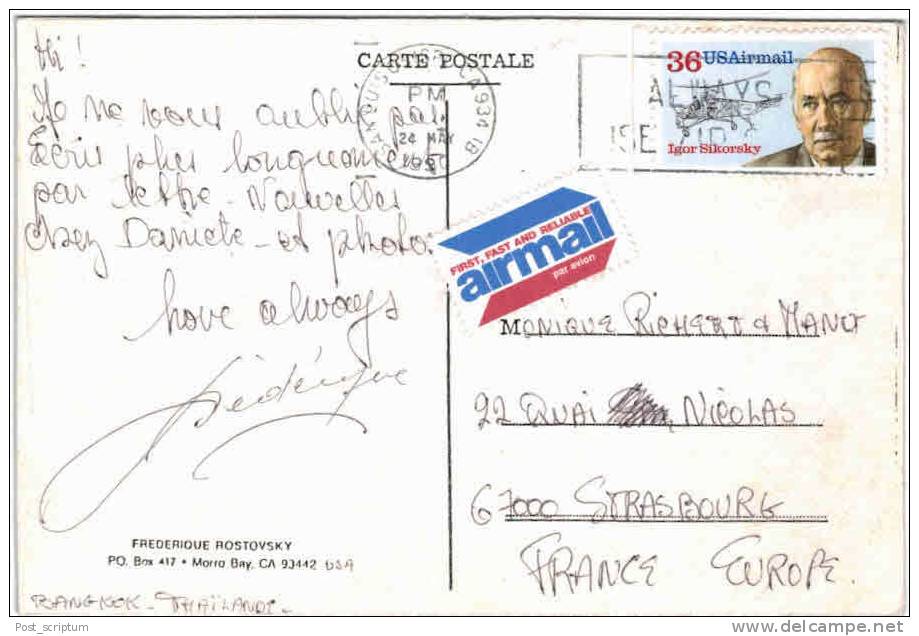 Hi !
Je ne vous oublie pas.
Ecris plus longuement
par lettre - Nouvelles
chez Daniele - et photo.
Love always
Frédérique
FREDERIQUE ROSTOVSKY
PO. Box 417 • Morro Bay, CA 93442 USA
BANGKOK - THAÏLANDE -
CARTE POSTALE
PM
24 MAY
934
36 USAirmail
Igor Sikorsky
ALWAYS
USE ZIP
FIRST, FAST AND RELIABLE
airmail
par avion
MONIQUE RICHERT &
22 QUAI NICOLAS
67000 STRASBOURG
FRANCE EUROPE.
Post_scriptum
delcampe.net